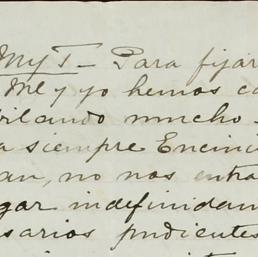 My T- Para fijar
Me y yo hemos ca
vilando mucho
a siempre Encin
an, no nos entra
gar indefinidam
sarios pudientes